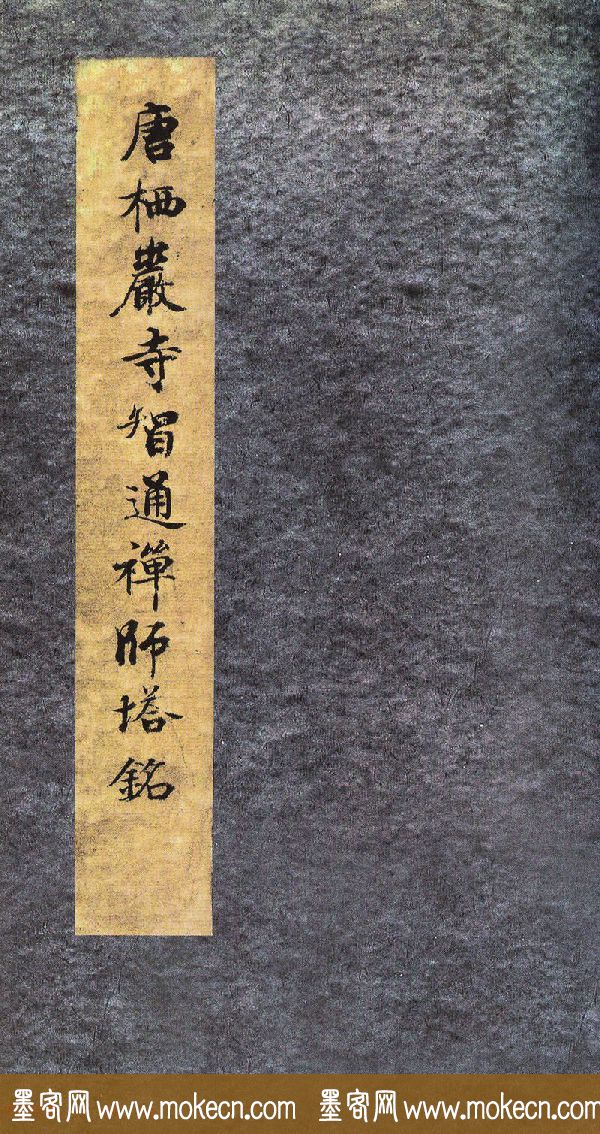 唐栖巖寺智通禪師塔銘
墨客网 www.mokecn.com 墨客网 www.mokecn.com